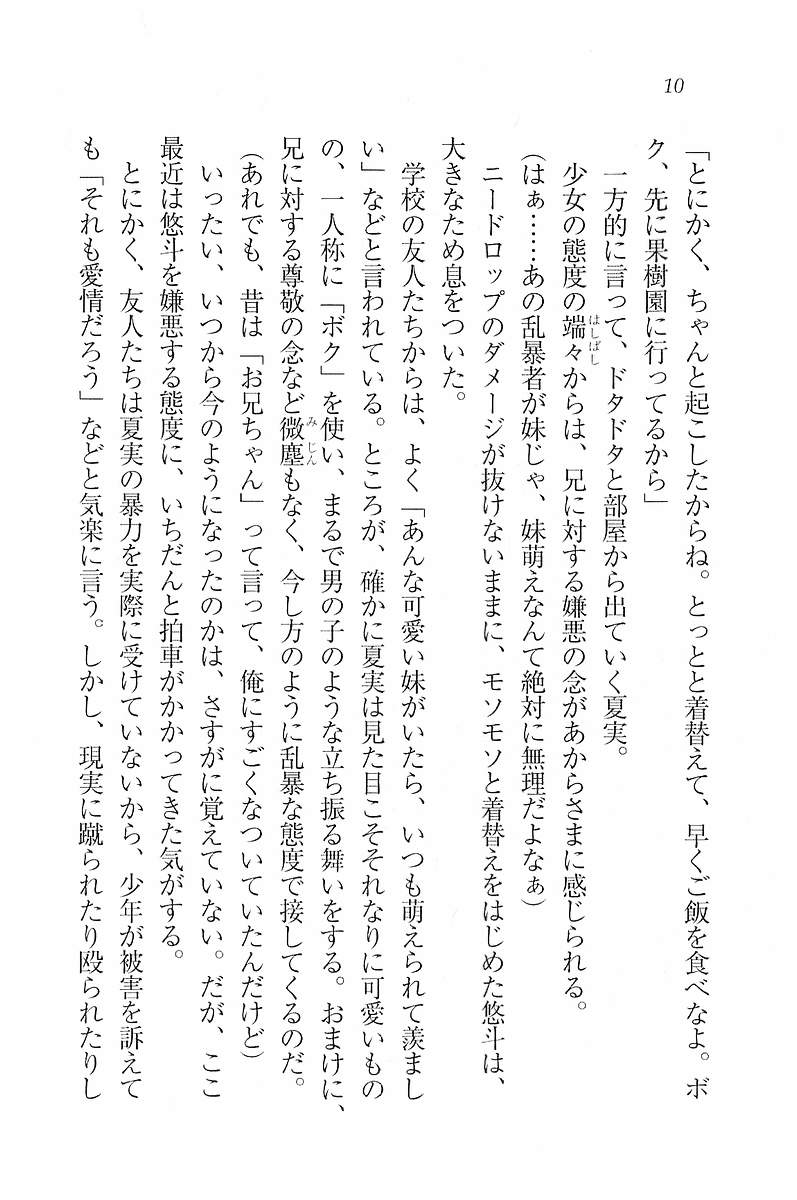 10
「とにかく、ちゃんと起こしたからね。とっとと着替えて、早くご飯を食べなよ。ボ
ク、先に果樹園に行ってるから」
一方的に言って、ドタドタと部屋から出ていく夏実。
少女の態度の端々からは、兄に対する嫌悪の念があからさまに感じられる。
はしばし
(はぁ……あの乱暴者が妹じゃ、妹萌えなんて絶対に無理だよなぁ)
ニードロップのダメージが抜けないままに、モソモソと着替えをはじめた悠斗は、
大きなため息をついた。
学校の友人たちからは、よく「あんな可愛い妹がいたら、いつも萌えられて羨まし
い」などと言われている。ところが、確かに夏実は見た目こそそれなりに可愛いもの
の、一人称に「ボク」を使い、まるで男の子のような立ち振る舞いをする。おまけに、
兄に対する尊敬の念など微塵もなく、今し方のように乱暴な態度で接してくるのだ。
みじん
(あれでも、昔は「お兄ちゃん」って言って、俺にすごくなついていたんだけど)
いったい、いつから今のようになったのかは、さすがに覚えていない。だが、ここ
最近は悠斗を嫌悪する態度に、いちだんと拍車がかかってきた気がする。
とにかく、友人たちは夏実の暴力を実際に受けていないから、少年が被害を訴えて
も「それも愛情だろう」などと気楽に言う。しかし、現実に蹴られたり殴られたりし